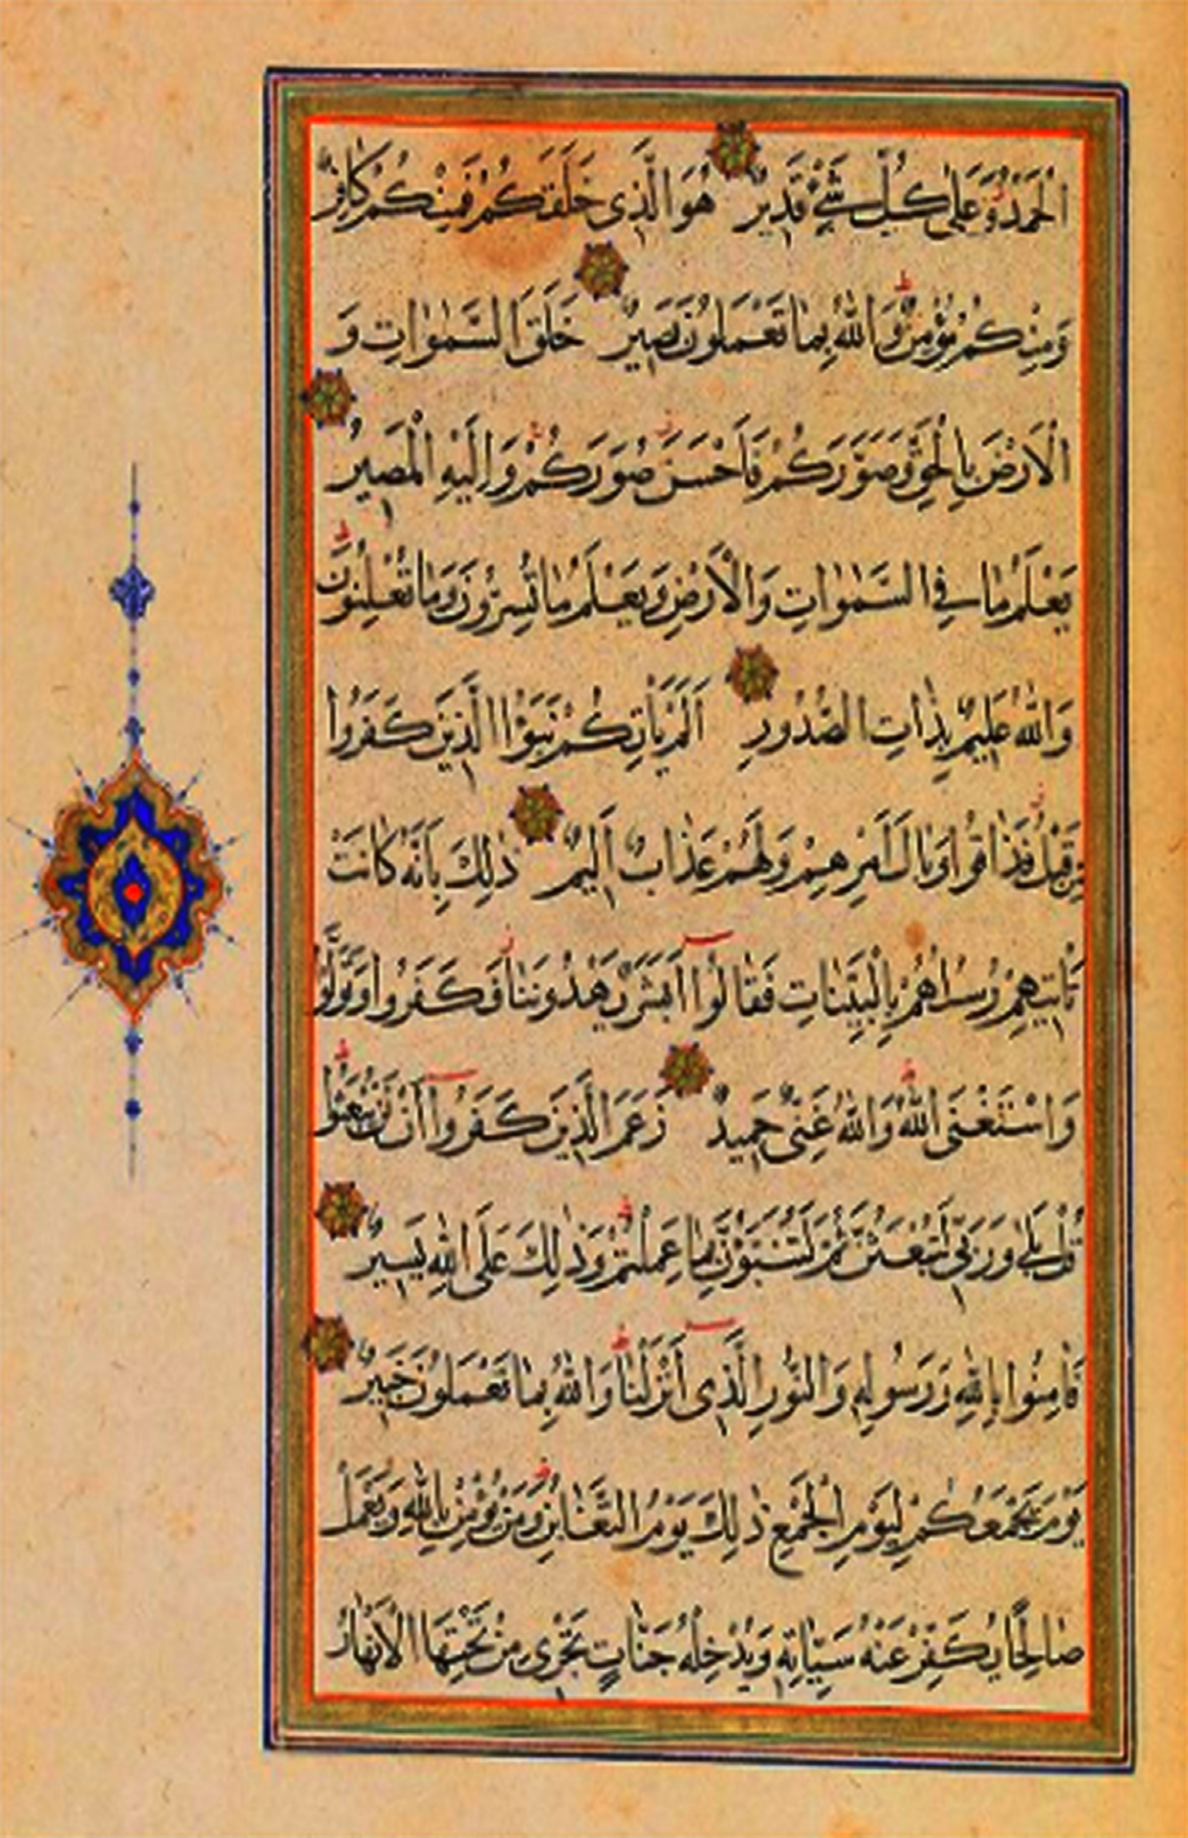 الْحَمْدُ وَهُوَ عَلٰى كُلِّ شَىْءٍ قَدِيرٌ هُوَ الَّذِى خَلَقَكُمْ فَمِنْكُمْ كَافِرٌ
وَمِنْكُمْ مُؤْمِنٌ وَاللّٰهُ بِمَا تَعْمَلُونَ بَصِيرٌ خَلَقَ السَّمٰوَاتِ وَ
الْاَرْضَ بِالْحَقِّ وَصَوَّرَكُمْ فَاَحْسَنَ صُوَرَكُمْ وَاِلَيْهِ الْمَصِيرُ
يَعْلَمُ مَا فِى السَّمٰوَاتِ وَالْاَرْضِ وَيَعْلَمُ مَا تُسِرُّونَ وَمَا تُعْلِنُونَ
وَاللّٰهُ عَلِيمٌ بِذَاتِ الصُّدُورِ اَلَمْ يَأْتِكُمْ نَبَؤُا الَّذِينَ كَفَرُوا
مِنْ قَبْلُ فَذَاقُوا وَبَالَ اَمْرِهِمْ وَلَهُمْ عَذَابٌ اَلِيمٌ ذٰلِكَ بِاَنَّهُ كَانَتْ
تَأْتِيهِمْ رُسُلُهُمْ بِالْبَيِّنَاتِ فَقَالُوا اَبَشَرٌ يَهْدُونَنَا فَكَفَرُوا وَتَوَلَّوْا
وَاسْتَغْنَى اللّٰهُ وَاللّٰهُ غَنِىٌّ حَمِيدٌ زَعَمَ الَّذِينَ كَفَرُوا اَنْ لَنْ يُبْعَثُوا
قُلْ بَلٰى وَرَبِّى لَتُبْعَثُنَّ ثُمَّ لَتُنَبَّؤُنَّ بِمَا عَمِلْتُمْ وَذٰلِكَ عَلَى اللّٰهِ يَسِيرٌ
فَاٰمِنُوا بِاللّٰهِ وَرَسُولِهِ وَالنُّورِ الَّذِى اَنْزَلْنَا وَاللّٰهُ بِمَا تَعْمَلُونَ خَبِيرٌ
يَوْمَ يَجْمَعُكُمْ لِيَوْمِ الْجَمْعِ ذٰلِكَ يَوْمُ التَّغَابُنِ وَمَنْ يُؤْمِنْ بِاللّٰهِ وَيَعْمَلْ
صَالِحًا يُكَفِّرْ عَنْهُ سَيِّاٰتِهِ وَيُدْخِلْهُ جَنَّاتٍ تَجْرِى مِنْ تَحْتِهَا الْاَنْهَارُ